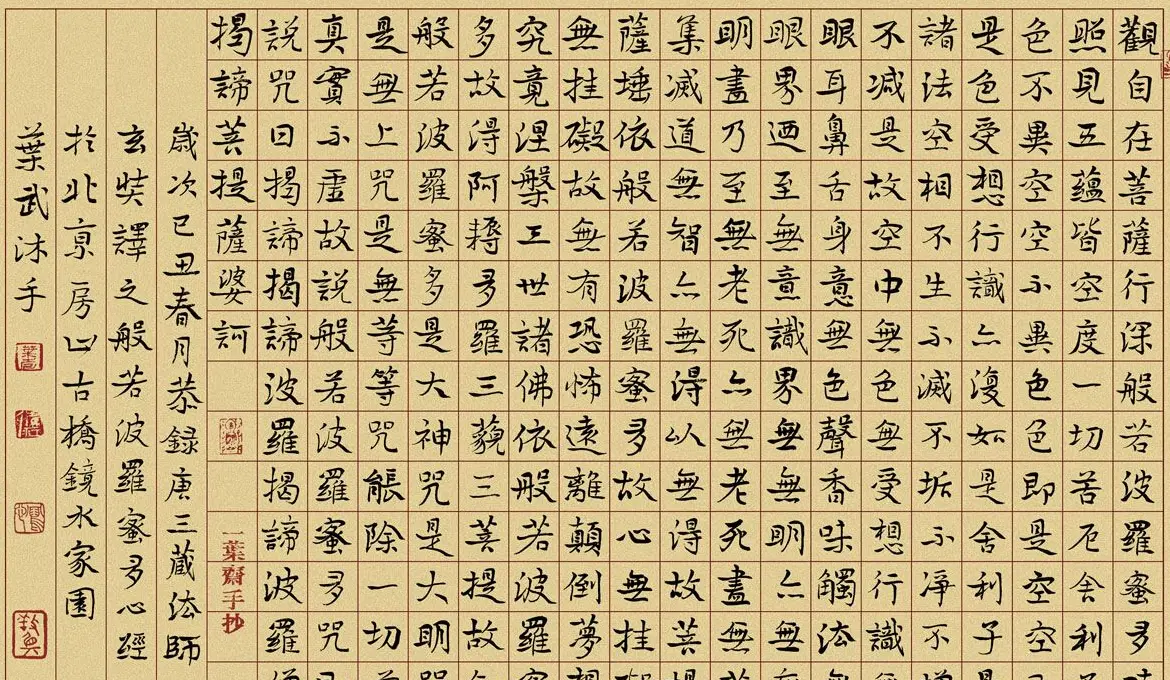 觀自在菩薩行深般若波羅蜜多
照見五蘊皆空度一切苦厄舍利
色不異空空不異色色即是空空
是色受想行識亦復如是舍利子
諸法空相不生不滅不垢不淨不
不減是故空中無色無受想行識
眼耳鼻舌身意無色聲香味觸法
眼界迺至無意識界無無明亦無
明盡乃至無老死亦無老死盡無
集滅道無智亦無得以無得故菩
薩埵依般若波羅蜜多故心無挂
無挂礙故無有恐怖遠離顛倒夢
究竟涅槃三世諸佛依般若波羅
多故得阿耨多羅三藐三菩提故
般若波羅蜜多是大神咒是大明
是無上咒是無等等咒能除一切
真實不虛故說般若波羅蜜多咒
說咒曰揭諦揭諦波羅揭諦波羅
揭諦菩提薩婆訶
一葉齋手抄
歲次己丑春月恭録唐三藏法師
玄奘譯之般若波羅蜜多心經
於北京房山古橋鏡水家園
葉武沐手